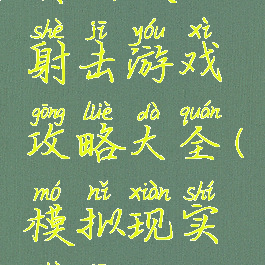 shè jī yóu xì
射击游戏
gōng lüè dà quán
攻略大全(
mó nǐ xiàn shí
模拟现实